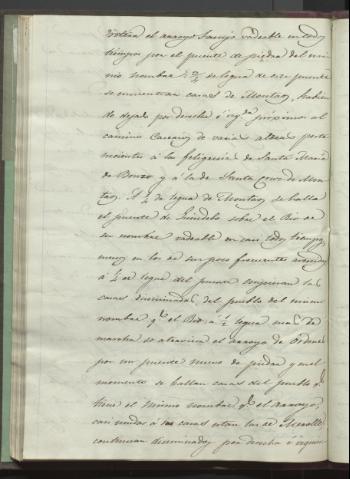 el arroyo vadeable en todos
tiempos por el puente de piedra del mis
mo nombre ½ de legua de este puente
se encuentran casas de Montaos, habien
do dejado por derecha é izqda próximos al
camino de varias aldeas perte
necientes á las feligresias de Santa Maria
de y á la de Santa Cruz de Mon
taos. A ½ de legua de Montaos se halla
el puente de sobre el Rio de
su nombre vadeable en casi todos tiempos
menos en los de sus poco frecuentes avenidas
á ¼ de legua del puente empiezan las
casas diseminadas del pueblo del mismo
nombre q.e el Rio: á ½ legua mas de
marcha se atraviesa el arroyo de Ordenes
por un puente nuevo de piedra y en el
momento se hallan casas del pueblo q.e
tiene el mismo nombre q.e el arroyo,
casi unidas á las casas estan las de
continuan diseminadas por derecha é izquier